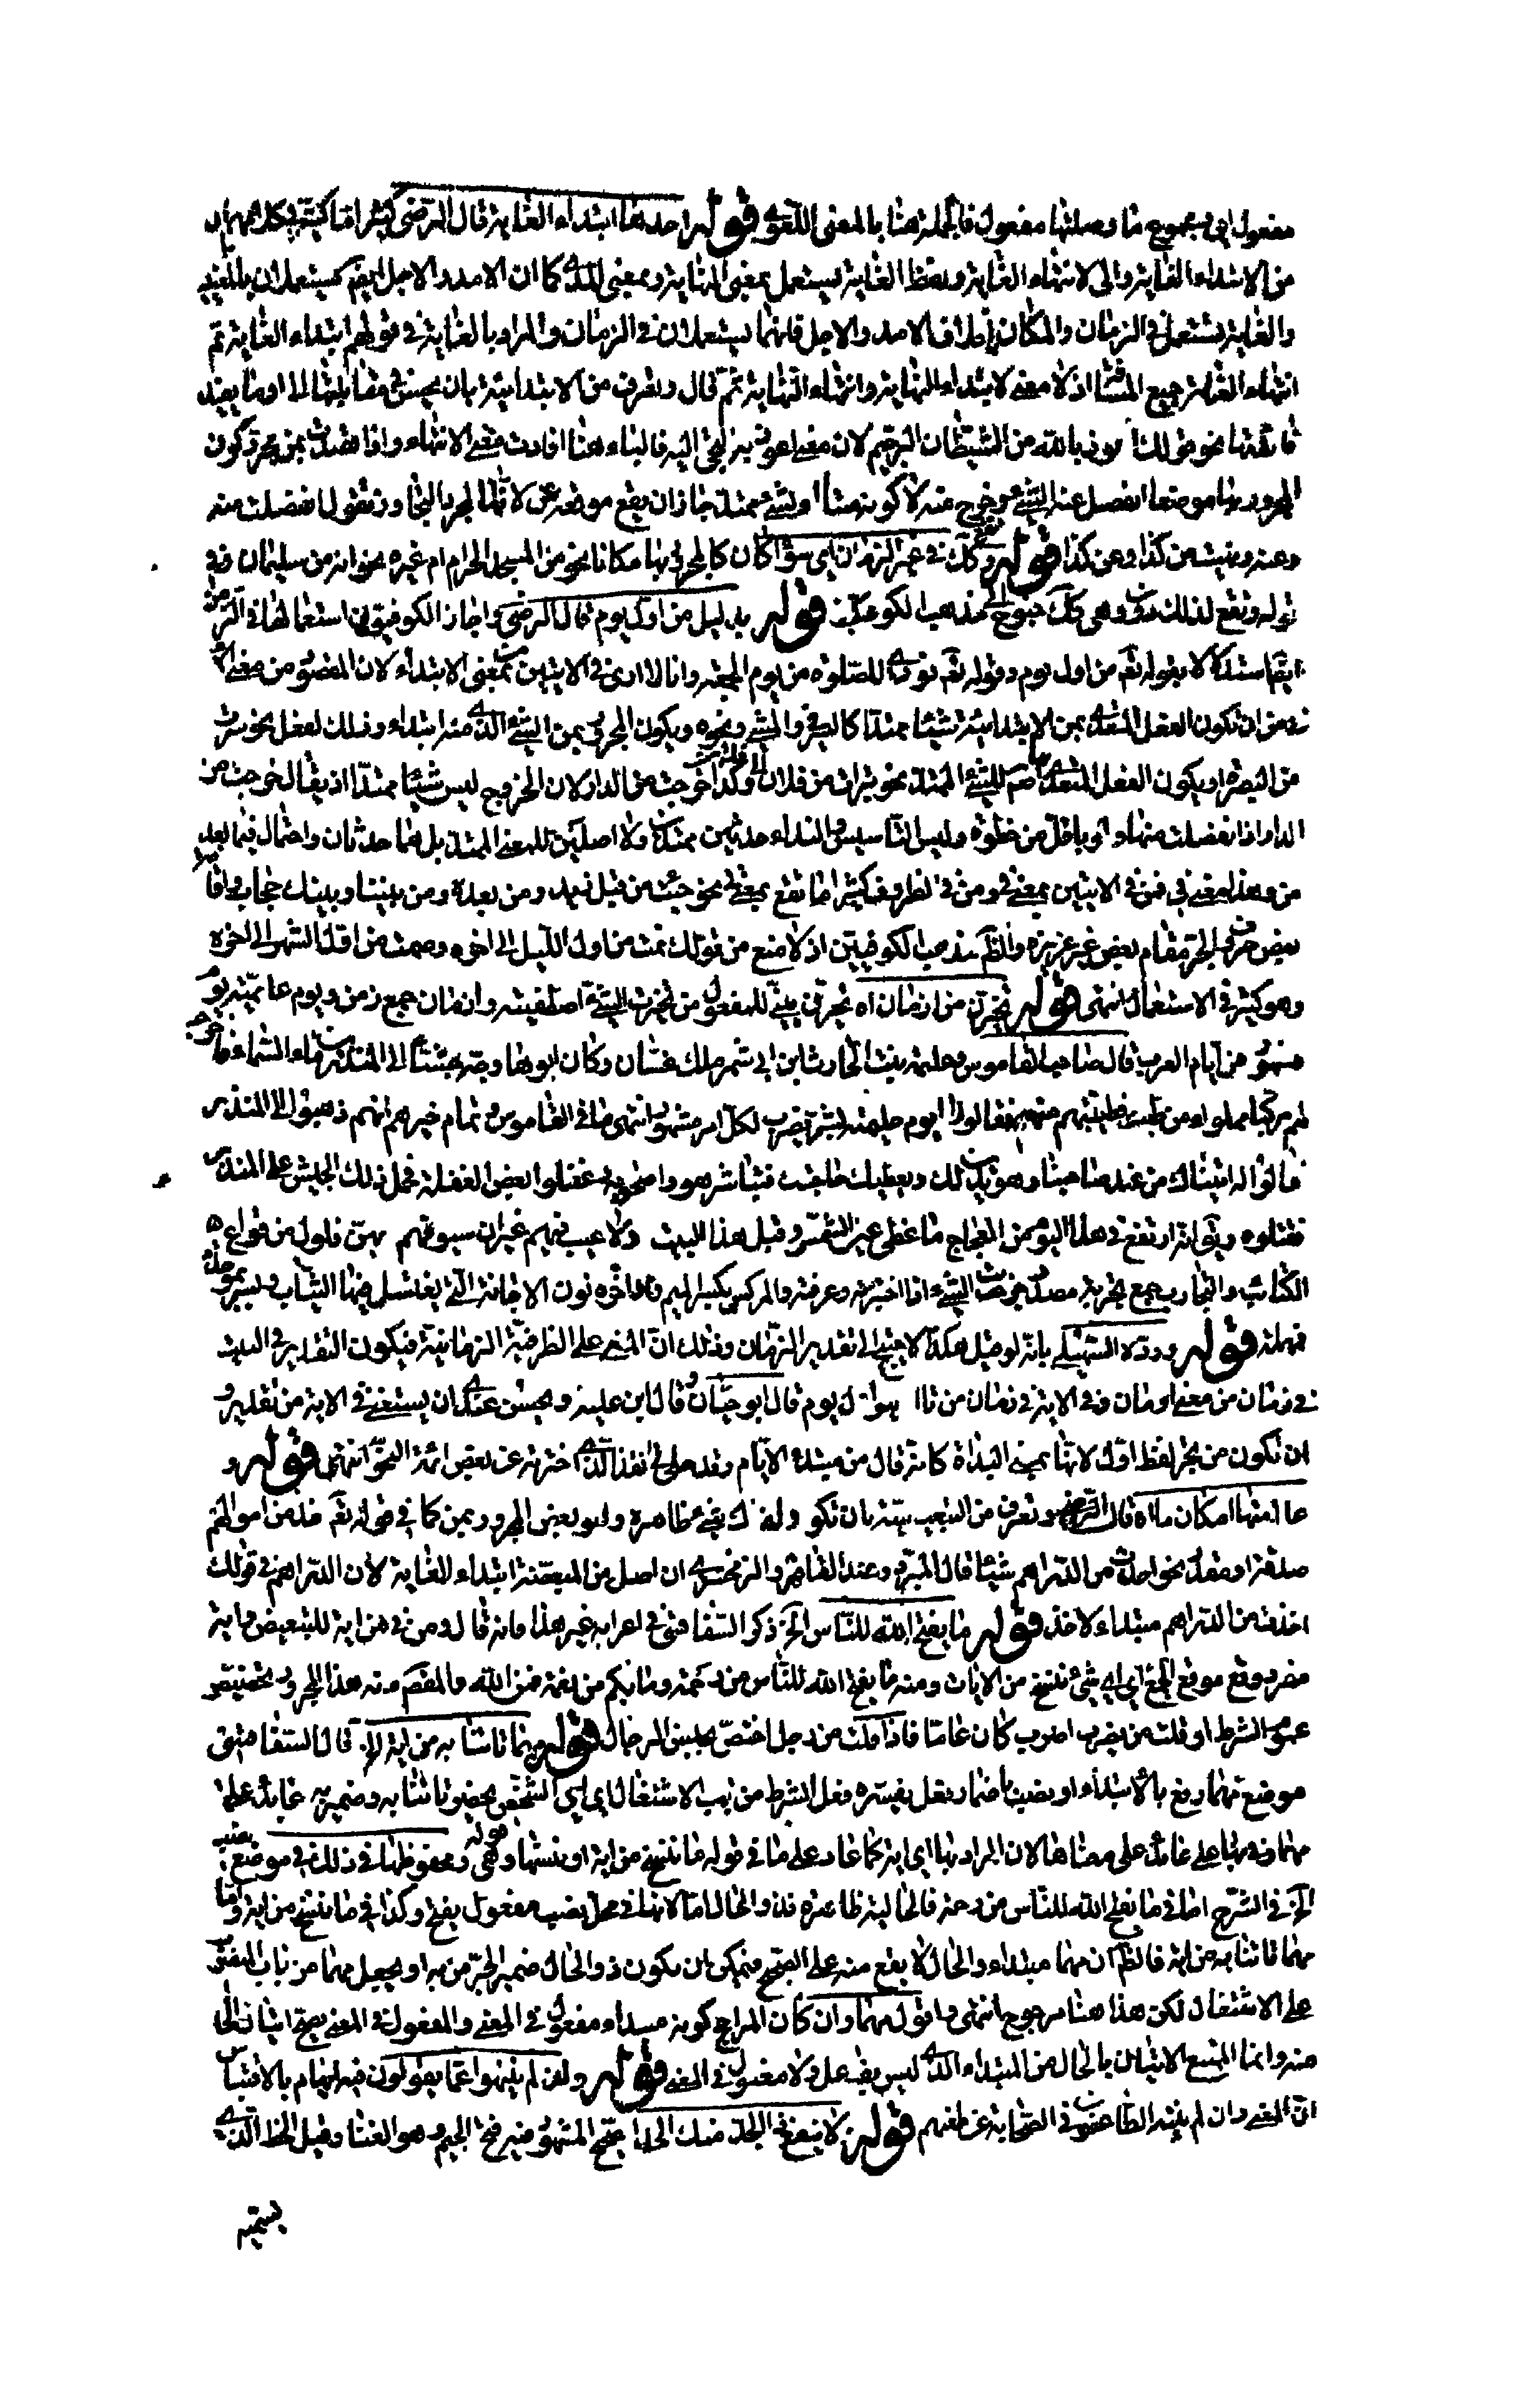 مفعول اي مجموع ما وصلتها مفعول فالجملة هنا بالمعنى اللغوي قوله احدها ابتداء الغاية قال الرضي كثيرا ما في كلامهم ان
من لابتداء الغاية والى لانتهاء الغاية ولفظ الغاية يستعمل بمعنى النهاية وبمعنى المدى كما ان الامد والاجل ايضا يستعملان بالمعنيين
والغاية تستعمل في الزمان والمكان بخلاف الامد والاجل فانهما يستعملان في الزمان والمراد بالغاية في قولهم ابتداء الغاية ثم
انتهاء الغاية جميع المسافة اذ لا معنى لابتداء النهاية وانتهاء النهاية ثم قال وتعرف من الابتدائية بان يحسن في مقابلتها الى او ما يفيد
فائدتها نحو قولك اعوذ بالله من الشيطان الرجيم لان معنى اعوذ به التجئ اليه فالباء هنا افادت معنى الانتهاء واذا قصدت بمن مجرد كون
المجرور بها موضعا انفصل عنه الشيء وخرج منه لا كونه مبتدأ لشيء ممتد جاز ان يقع موضعه عن لانها لمجرد التجاوز تقول انفصلت منه
وعنه ونهيت من كذا وعن كذا قوله وكذا في غير الزمان اي سواء كان المجرور بها مكانا نحو من المسجد الحرام ام غيره نحو انه من سليمان
قوله بدليل من اول يوم قال الرضي واجاز الكوفيون استعمالها في الزمان
ايضا استدلالا بقوله تعالى من اول يوم وقوله تعالى نودي للصلوة من يوم الجمعة وانا لا ارى في الايتين معنى الابتداء لان المقصود من معنى الابتداء
في من ان يكون الفعل المتعدي بمن الابتدائية شيئا ممتدا كالسير والمشي ونحوه ويكون المجرور بمن الشيء الذي منه ابتداء ذلك الفعل نحو سرت
من البصرة او يكون الفعل المتعدي بها اصلا للشيء الممتد نحو تبرات من فلان وكذا خرجت من الدار لان الخروج ليس شيئا ممتدا اذ يقال خرجت من
الدار اذا انفصلت منها ولو باقل من خطوة وليس التاسيس والنداء حدثين ممتدين ولا اصلين للمعنى الممتد بل هما حدثان واقعان فيما بعد
من وهذا معنى في فمن في الايتين بمعنى في ومن في الظروف كثيرا ما تقع بمعنى في نحو جئت من قبل زيد ومن بعده ومن بيننا وبينك حجاب واقامة
بعض حروف الجر مقام بعض غير عزيزة والظاهر مذهب الكوفيين اذ لا منع من قولك نمت من اول الليل الى اخره وصمت من اول الشهر الى اخره
وهو كثير في الاستعمال انتهى قوله تخيرن من ازمان اه تخيرن مبني للمفعول من تخيرت الشيء اصطفيته وازمان جمع زمن ويوم حليمة يوم
مشهور من ايام العرب قال صاحب القاموس وحليمة بنت الحارث ابن ابي شمر ملك غسان وكان ابوها وجه جيشا الى المنذر بن ماء السماء فاخرجت
لهم مركنا مملوا من طيب فطيبتهم منه فقالوا ما يوم حليمة بسر يضرب لكل امر مشهور انتهى ما في القاموس وتمام خبرهم انهم ذهبوا الى المنذر
فقالوا اتيناك من عند صاحبنا وهو يدين لك ويعطيك حاجتك فتباشر هو واصحابه وغفلوا بعض الغفلة فحمل ذلك الجيش على المنذر
فقتلوه ويقال انه ارتفع في هذا اليوم من العجاج ما غطى عين الشمس وقبل هذا البيت ولا عيب فيهم غير ان سيوفهم بهن فلول من قراع
الكتائب والتجارب جمع تجربة مصدر جربت الشيء اذا اختبرته وعرفته والمركن بكسر الميم واخره نون الاجانة التي يغسل فيها الثياب
قوله ورده السهيلي بانه لو قيل هكذا لاحتيج الى تقدير الزمان وذلك ان المنع على الظرفية الزمانية فيكون التقدير في البيت
من زمان ازمان وفي الاية من زمان اول يوم قال ابو حيان وقال ابن عطية ويحسن عندي ان يستغنى في الاية من تقدير و
ان تكون من تجر لفظ اول لانها بمعنى البداة كانه قال من مبتدء الايام وقد حكي لي هذا الذي اخترته عن بعض ائمة النحو انتهى قوله و
علامتها امكان ما اه قال الرضي وتعرف من التبعيضية بان يكون هناك شيء ظاهر وهو بعض المجرور بمن كما في قوله تعالى خذ من اموالهم
صدقة او مقدر نحو اخذت من الدراهم اي من الدراهم شيئا قال المبرد وعبد القاهر والزمخشري ان اصل من المبعضة ابتداء الغاية لان الدراهم في قولك
اخذت من الدراهم مبتداء الاخذ قوله ما يفتح الله للناس الخ ذكر السفاقسي في اعرابه غير هذا فانه قال ومن في من اية للتبعيض واية
مفرد وقع موقع الجمع اي اي شيء ننسخ من الايات ومنه ما يفتح الله للناس من رحمة وما بكم من نعمة فمن الله والمقصود منه هذا المجرور تخصيص
عموم الشرط لو قلت من يضرب اضرب كان عاما فاذا قلت من رجل اختص بجنس الرجال قوله مهما تاتنا به من اية الخ قال السفاقسي في
موضع مهما رفع بالابتداء او نصب باضمار فعل يفسره فعل الشرط من باب الاشتغال اي اي الشيء تحضر تاتنا به وضمير به عائد على
مهما وفي بها على عائد على معناها لان المراد بها اية كما عاد على ما في قوله ما ننسخ من اية او ننسها قوله وهي ومخفوظها في ذلك في موضع نصب
الخ في الشرح اما في ما يفتح الله للناس من رحمة فالحالية ظاهرة وذو الحال اما لانها في محل نصب مفعول يفتح وكذا في ما ننسخ من اية واما
مهما تاتنا به من اية فالظاهر ان مهما مبتداء والحال لا يقع منه على الصحيح فيمكن ان يكون ذو الحال ضمير الجر من به او يجعل مهما من باب المنصوب
على الاشتغال لكن هذا هنا مرجوح انتهى واقول مهما وان كان الراجح كونه مبتداء مفعول في المعنى والمفعول في المعنى يصح اتيان الحال
منه وانما الممتنع الاتيان بالحال من المبتداء الذي ليس بفاعل ولا مفعول في المعنى قوله وان لم ينتهوا عما يقولون فيه ايهام بالاقتباس
اذ المعنى وان لم ينته الطاعنون في الصحابة عن طعنهم قوله لا ينفع ذا الجد منك الجد الجد بفتح الجيم المشهور فيه فتح الجيم وهو الغنا وقيل الحظ الذي
يسميه